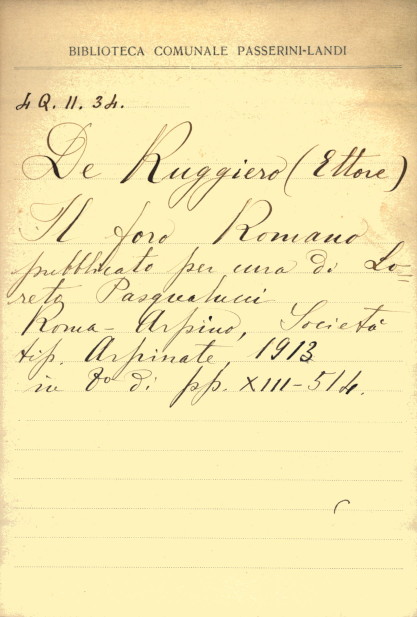 BIBLIOTECA COMUNALE PASSERINI-LANDI
4 Q. 11. 34.
De Ruggiero (Ettore)
Il foro Romano
pubblicato per cura di Lo=
reto Pasqualucci
Roma-Arpino, Società
tip. Arpinate, 1913
in 8° di pp. XIII-514.